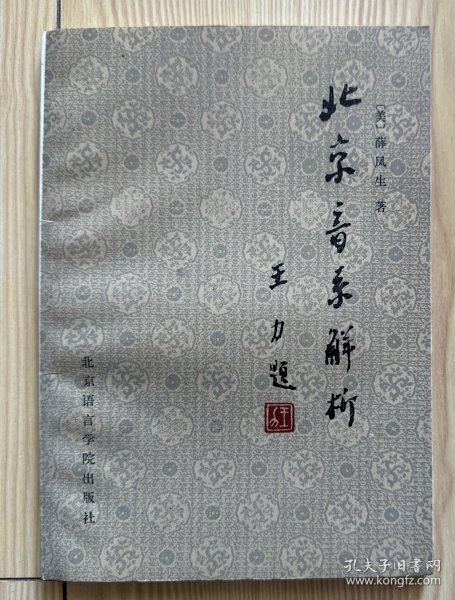 〔美〕薛凤生 著
北京音系解析
王力题
王力
北京语言学院出版社
孔夫子旧书网
www.kongfz.com